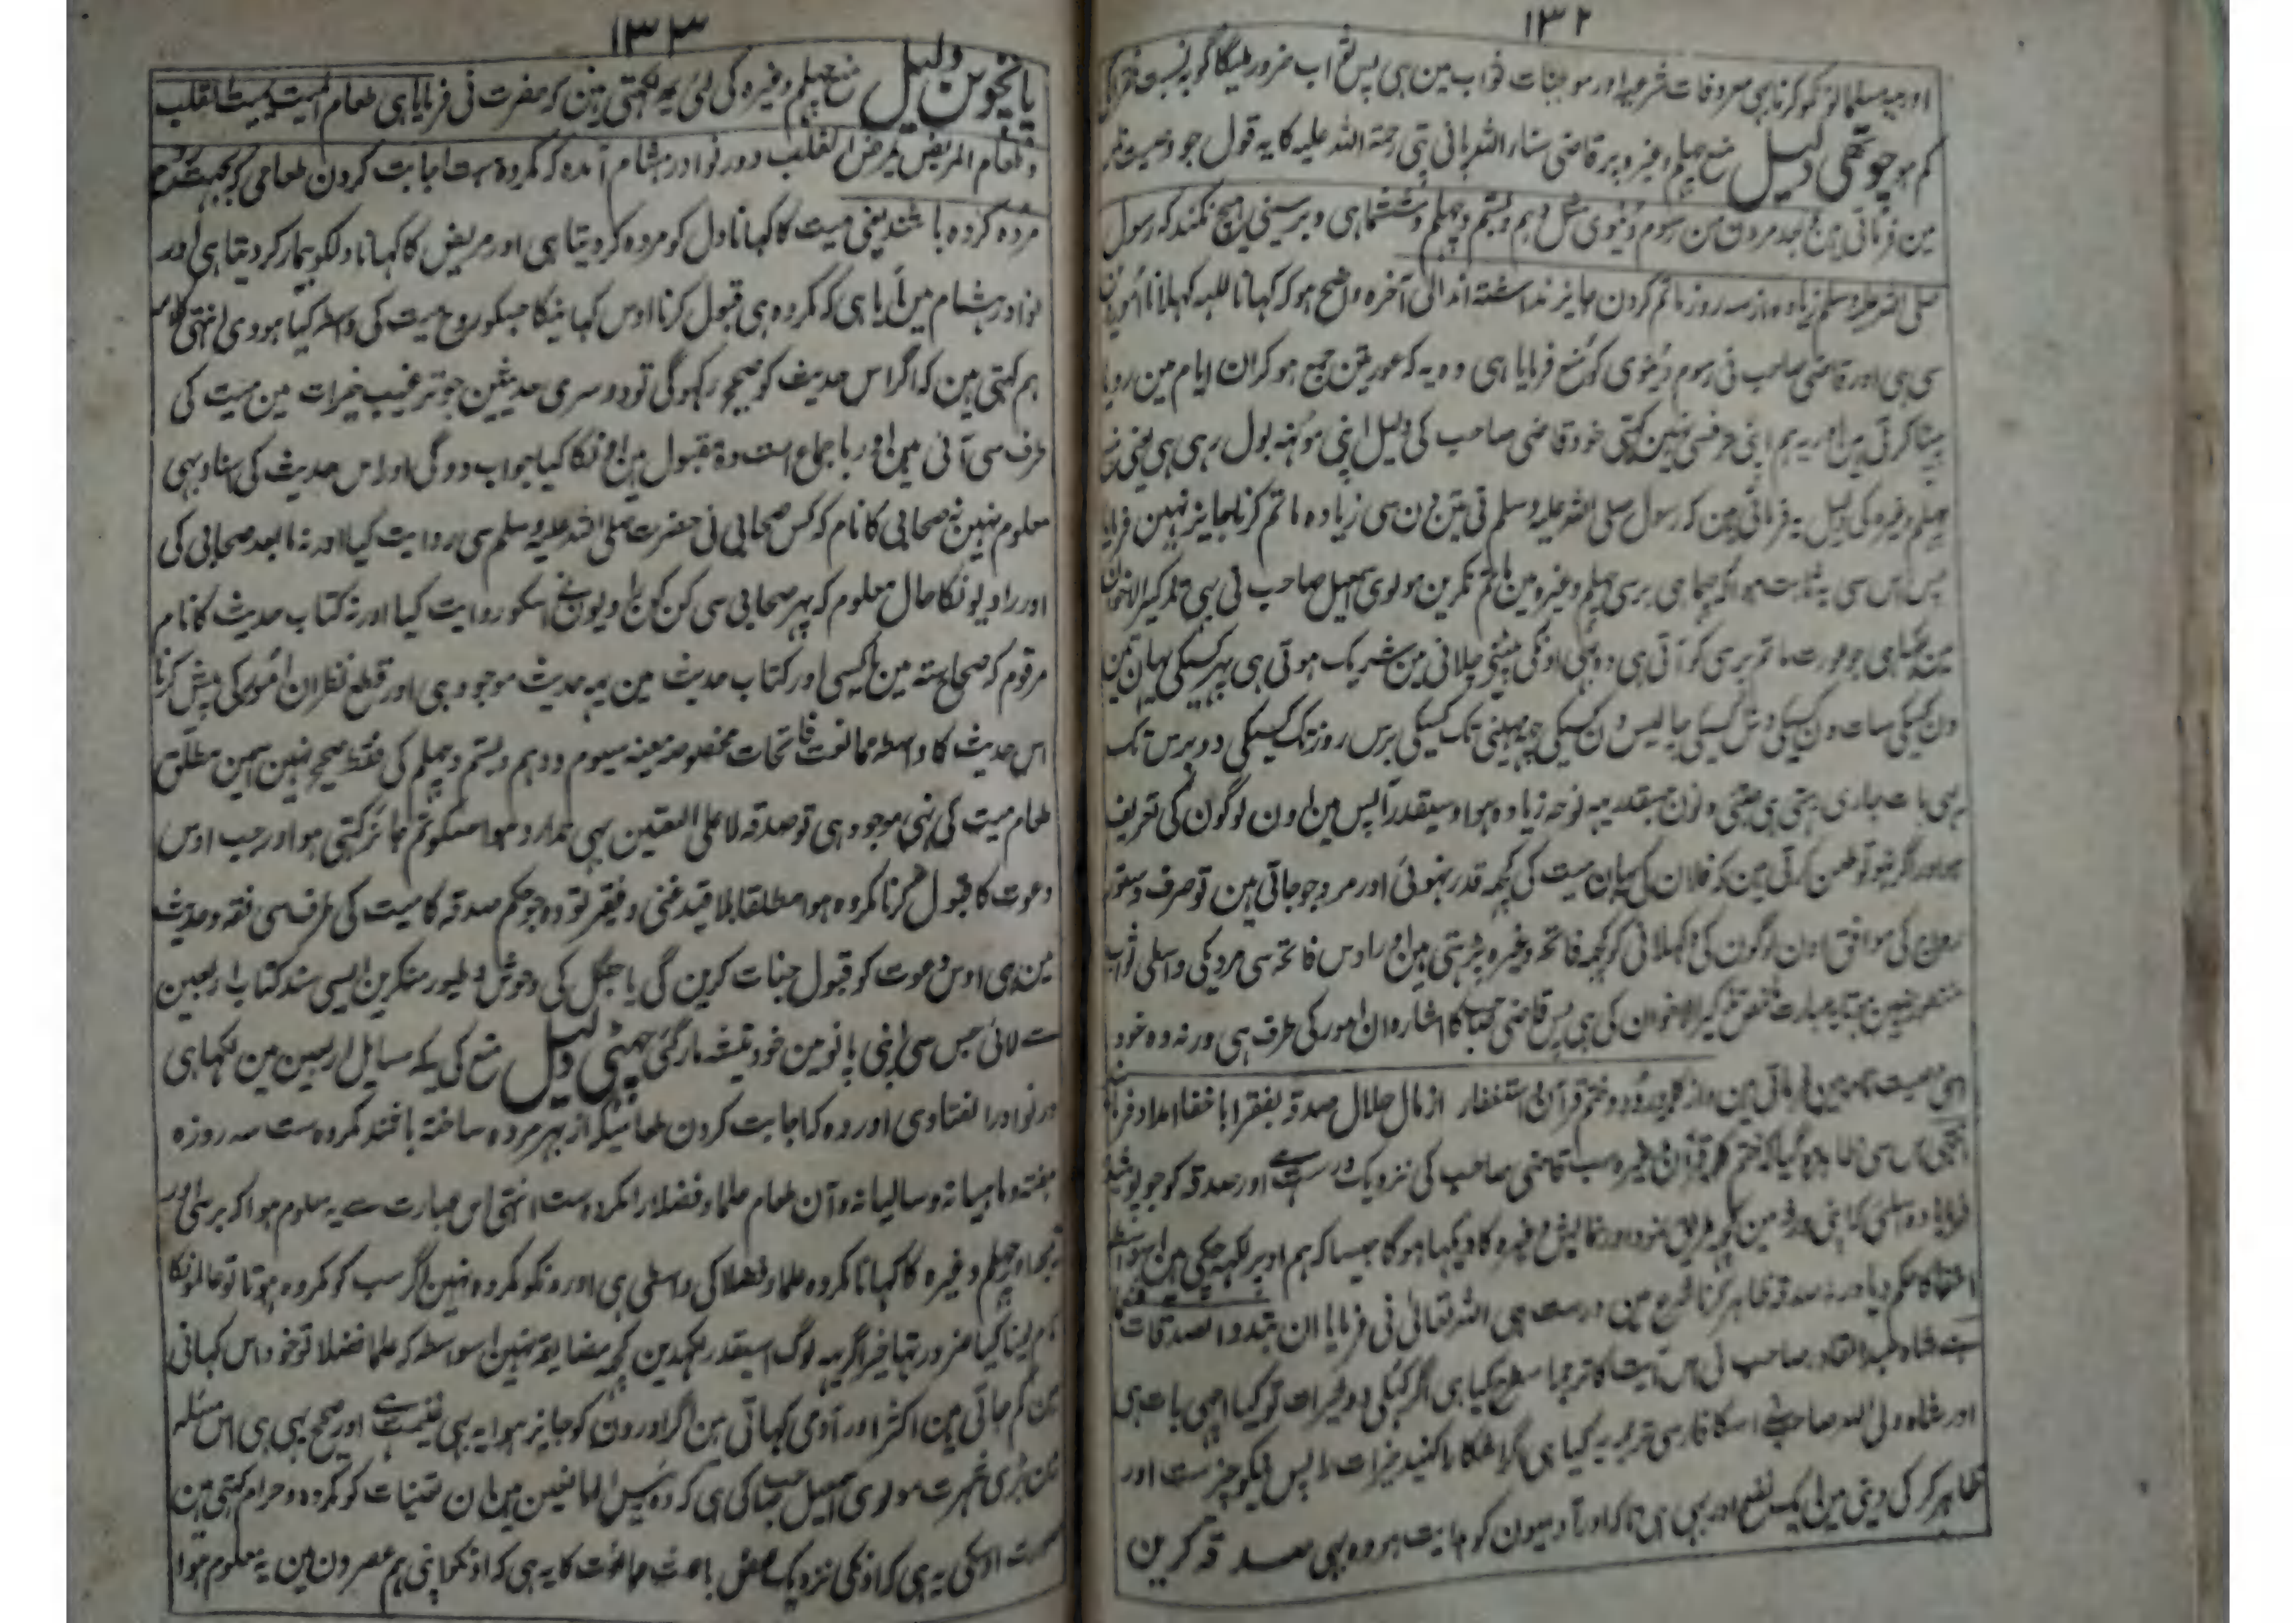 ۱۳۲
اور یہ مسلمانونکو کرنا ہی معروفات شرعیہ اور موجبات ثواب مین ہی پس ثواب ضرور ملیگا گو بہ نسبت
کم ہو چوتھی دلیل منع چہلم وغیرہ پر قاضی ثناء اللہ پانی پتی رحمۃ اللہ علیہ کا یہ قول جو وصیت
مین فرماتی ہین بعد مردن من رسوم دنیوی مثل دہم و بستم و چہلم و ششماہی و برسینی ہیچ نکنند کہ رسول
صلی اللہ علیہ وسلم زیادہ از سہ روز ماتم کردن جایز نداشتہ اند الی آخرہ واضح ہو کہ کہانا للہ کہلانا امور
سی ہی اور قاضی صاحب نی رسوم دنیوی کو منع فرمایا ہی وہ یہ کہ عورتین جمع ہو کر ان ایام مین رویا
پیٹا کرتی ہین اور یہ ہم اپنی طرفسی نہین کہتی خود قاضی صاحب کی دلیل اپنی مونہہ بول رہی ہی یعنی
چہلم وغیرہ کی دلیل یہ فرماتی ہین کہ رسول صلی اللہ علیہ وسلم نی تین دن سی زیادہ ماتم کرنا جایز نہین فرمایا
پس اس سی یہ ثابت ہوا کہ چھماہی برسی چہلم وغیرہ مین ماتم نکرین مولوی اسمعیل صاحب نی بہی تذکیر الاخوان
مین لکہا ہی جو عورت ماتم پرسی کو آتی ہی وہ بہی اونکی پیٹنی چلانی مین شریک ہوتی ہی پہر کسیکی یہان تین
دن کسیکی سات دن کسیکی دس کسیکی چالیس دن کسیکی چہہ مہینی تک کسیکی برس روز تک کسیکی دو برس تک
یہی بات جاری رہتی ہی جتنی دنون جسقدر یہہ نوحہ زیادہ ہوا وسیقدر آپس مین اون لوگون کی تعریف
ہو اور اگر نہو تو طعن کرتی ہین کہ فلان کی یہان میت کی کچہہ قدر نہوئی اور مرد جو جاتی ہین تو صرف دستور
رواج کی موافق اون لوگون کی کہلانی کو کچہہ فاتحہ وغیرہ پڑہتی ہین اور اوس فاتحہ سی مردیکی واسطی ثواب
منظور نہین ہوتا یہ عبارت تذکیر الاخوان کی ہی پس قاضی صاحب کا اشارہ ان امور کی طرف ہی ورنہ وہ خود
اسی وصیت نامہ مین فرماتی ہین و از کلمہ و درود و ختم قرآن و استغفار از مال حلال صدقہ بفقرا باخفا امداد
انتہی اس سی ظاہر ہو گیا کہ ختم کلمہ قرآن وغیرہ سب قاضی صاحب کی نزدیک درست ہے اور صدقہ کو جو پوشیدہ
فرمایا وہ اسلئی کہ اپنی ورثہ مین کچہہ طریق نمود اور نمایش وغیرہ کا دیکہا ہوگا جیسا کہ ہم اوپر لکہہ چکی ہین اسواسطی
اخفا کا حکم دیا ورنہ صدقہ ظاہر کرنا شرع مین درست ہی اللہ تعالی نی فرمایا ان تبدوا الصدقات فنعما
ہی شاہ عبد القادر صاحب نی اس آیت کا ترجمہ اسطرح کیا ہی اگر کہلی دو خیرات تو کیا اچہی بات ہی
اور شاہ ولی اللہ صاحب نے اسکا فارسی ترجمہ یہ کیا ہی اگر آشکارا کنید خیرات را پس نیکو چیزست اور
ظاہر کر کی دینی مین ایک نفع اور بہی ہی تاکہ اور آدمیون کو ہدایت ہو وہ بہی صدقہ کرین
۱۳۳
پانچوین دلیل منع چہلم وغیرہ کی لئی یہ لکہتی ہین کہ حضرت نی فرمایا ہی طعام المیت یمیت القلب
وطعام المریض یمرض القلب و در نوادر ہشام آمدہ کہ مکروہ ست اجابت کردن طعامی کہ بجہت روح
مردہ کردہ باشند یعنی میت کا کہانا دل کو مردہ کر دیتا ہی اور مریض کا کہانا دلکو بیمار کر دیتا ہی اور
نوادر ہشام مین آیا ہی کہ مکروہ ہی قبول کرنا اوس کہانیکا جسکو روح میت کی واسطہ کیا ہووی انتہی کلامہ
ہم کہتی ہین کہ اگر اس حدیث کو صحیح رکہوگی تو دوسری حدیثین جو ترغیب خیرات مین میت کی
طرف سی آئی ہین اور باجماع امت وہ مقبول ہین اونکا کیا جواب دوگی اور اس حدیث کی سناد بہی
معلوم نہین نہ صحابی کا نام کہ کس صحابی نی حضرت صلی اللہ علیہ وسلم سی روایت کیا اور نہ مابعد صحابی کی
اور راویونکا حال معلوم کہ پہر صحابی سی کن کن راویون نے اسکو روایت کیا اور نہ کتاب حدیث کا نام
مرقوم کہ صحاح ستہ مین یا کسی اور کتاب حدیث مین یہہ حدیث موجود ہی اور قطع نظر ان امور کی پیش کرنا
اس حدیث کا واسطہ ممانعت فاتحات مخصوصہ معینہ سیوم و دہم و بستم و چہلم کی فقط صحیح نہین اسمین مطلق
طعام میت کی نہی موجود ہی تو صدقہ لاعلی التعین بہی ندارد ہوا جسکو تم جائز کہتی ہو اور جب اوس
دعوت کا قبول کرنا مکروہ ہوا مطلقا بلا قید غنی و فقیر تو وہ جو حکم صدقہ کا میت کی طرف سی فقہ و حدیث
مین ہی اوس دعوت کو قبول جنات کرین گی یا جنگل کی وحوش و طیور منکرین ایسی سند کتاب اربعین
سے لائی جس سی اپنی پانو مین خود تیشہ مار گئی چہٹی دلیل منع کی یہ کہ مسایل اربعین مین لکہا ہی
در نوادر الفتاوی آوردہ کہ اجابت کردن طعامیکہ از بہر مردہ ساختہ باشند مکروہ ست سہ روزہ
ہفتہ و ماہیانہ و سالیانہ و آن طعام علما و فضلا را مکروہست انتہی اس عبارت سے یہ معلوم ہوا کہ برسی اور
تیجا اور چہلم وغیرہ کا کہانا مکروہ علما و فضلا کی واسطی ہی اور ونکو مکروہ نہین اگر سب کو مکروہ ہوتا تو عالمونکا
نام لینا کیا ضرور تہا خیر اگر یہہ لوگ اسیقدر لکہدین کچہہ مضایقہ نہین اسواسطہ کہ علما فضلا تو خود اس کہانی
مین کم جاتی ہین اکثر اور آدمی کہاتی ہین اگر اورون کو جایز ہوا یہ بہی غنیمت ہے اور صحیح یہی ہی اس مسئلہ
مین بڑی شہرت مولوی اسمعیل صاحب کی ہی کہ وہ رئیس المانعین ہین ان تعینات کو مکروہ و حرام کہتی ہین
اوسکی یہ ہی کہ اونکی نزدیک بعض باعث ممانعت کا یہ ہی کہ اونکو اپنی ہم عصرون مین یہ معلوم ہوا